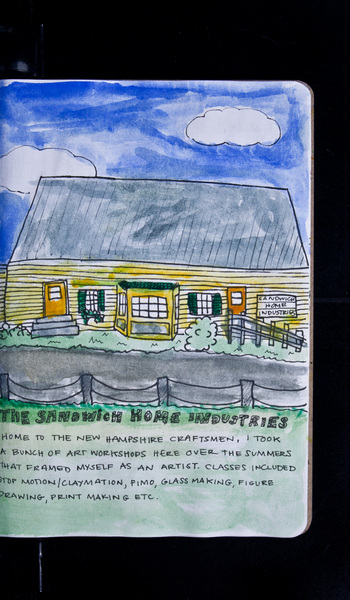 SANDWICH
HOME
INDUSTRIES
THE SANDWICH HOME INDUSTRIES
HOME TO THE NEW HAMPSHIRE CRAFTSMEN, I TOOK
A BUNCH OF ART WORKSHOPS HERE OVER THE SUMMERS
THAT FRAMED MYSELF AS AN ARTIST. CLASSES INCLUDED
STOP MOTION/CLAYMATION, FIMO, GLASS MAKING, FIGURE
DRAWING, PRINT MAKING ETC.